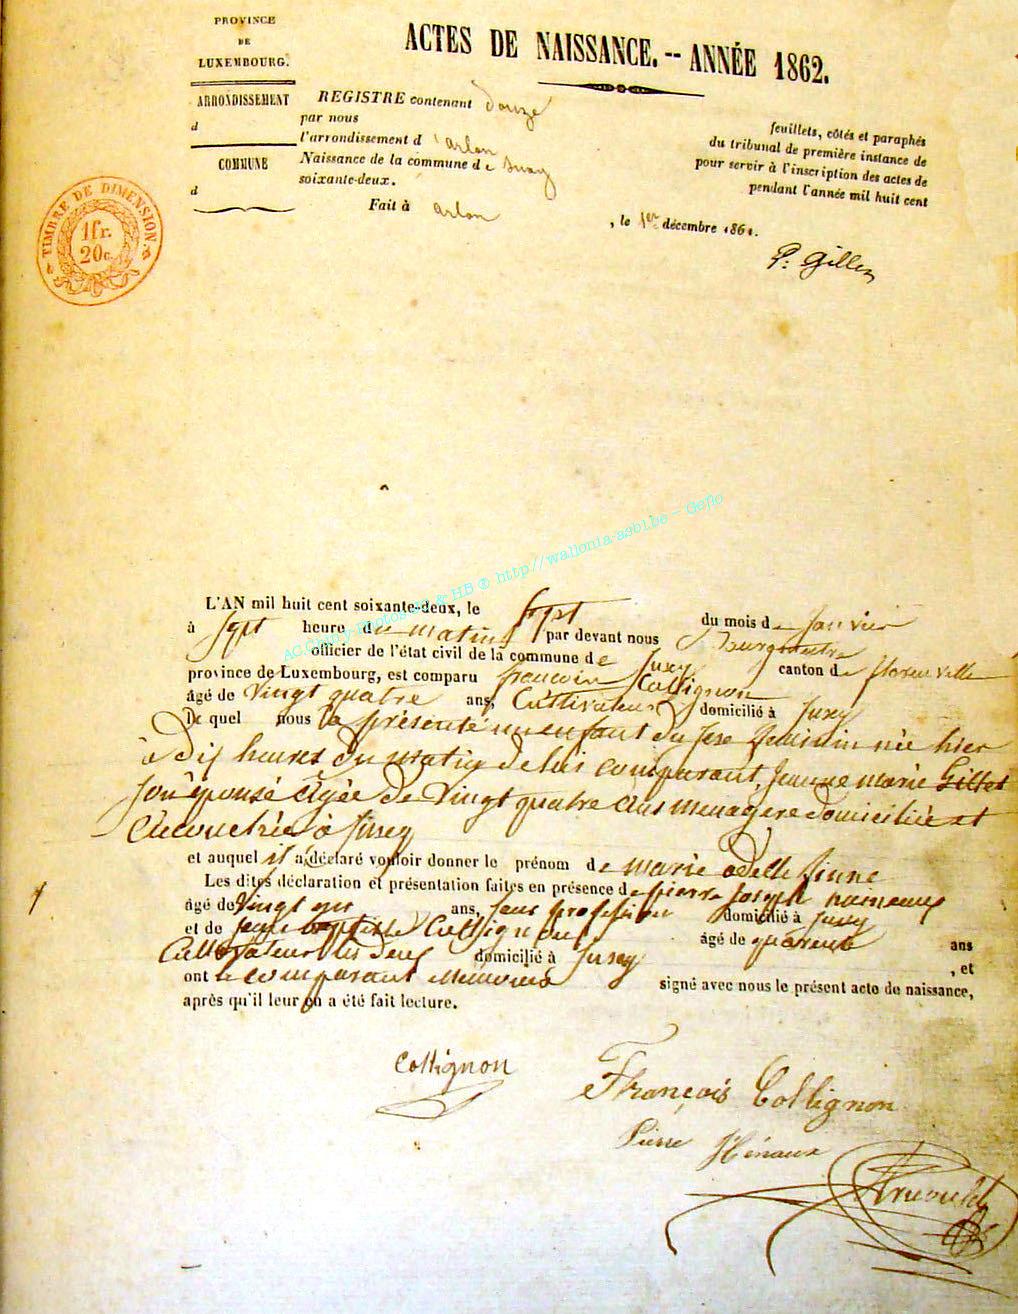 PROVINCE
DE
LUXEMBOURG.
ARRONDISSEMENT
d
COMMUNE
d
ACTES DE NAISSANCE. -- ANNÉE 1862.
REGISTRE contenant douze feuillets, côtés et paraphés
par nous du tribunal de première instance de
l'arrondissement d'arlon pour servir à l'inscription des actes de
Naissance de la commune de Jusey pendant l'année mil huit cent
soixante-deux.
Fait à arlon, le 1er décembre 1861.
P. Gillen
TIMBRE DE DIMENSION
1fr.
20c.
AC Chiny - Photos & HB ® http://wallonia.a3b1.be - Geflo
L'AN mil huit cent soixante-deux, le sept du mois de Janvier
à sept heure du matin par devant nous Bourgmestre
officier de l'état civil de la commune de Jusey canton de florenville
province de Luxembourg, est comparu francoin Collignon
âgé de Vingt quatre ans, Cultivateur domicilié à Jusey
De quel nous a présenté un enfant du sexe feminin née hier
à dix heures du matin de lui comparant, Jeanne marie Gillet
son épouse agée de Vingt quatre ans menagere domiciliée et
à Jusey
et auquel il a déclaré vouloir donner le prénom de marie odelle
Les dites déclaration et présentation faites en présence de pierre Joseph
âgé de Vingt ans, sans profession domicilié à Jusey
et de Jean baptiste Collignon âgé de quarente ans
Cultivateur les deux domicilié à Jusey, et
ont le comparant signé avec nous le présent acte de naissance,
après qu'il leur en a été fait lecture.
Collignon
François Collignon
Pierre Hénaux
Arnould